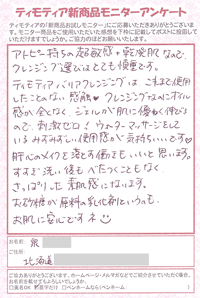 ティモティア新商品モニターアンケート
この度はティモティア「新商品お試しモニター」にご応募いただきありがとうございます。
モニター商品をご使用いただいた感想を下枠に記載してポストに投函して
いただけますでしょうか。ご協力のほどお願いいたします。
アトピー持ちの超敏感+乾燥肌なので、
クレンジング選びはとても慎重です。
ティモティア バリアクレンジングは、これまで使用し
たことのない感触♥ クレンジングなのにオイル
感が全くなく、ジェルが肌に優しく伸びる
ので、刺激ゼロ! ウォーターマッサージをして
いるみずみずしい使用感が気持ちいいです♥
肝心のメイクを落とす価もとてもいいと思います。
すすぎ洗い後もべたつくこともなく、
さっぱりした素肌感になります。
お砂糖が原料の乳化剤というのも、
お肌に安心ですネ☺
お名前: 泉
ご住所:
北海道
ご協力ありがとうございます。ホームページ・メルマガなどでご紹介させていただいた場合、
お名前を載せてもよろしいでしょうか。